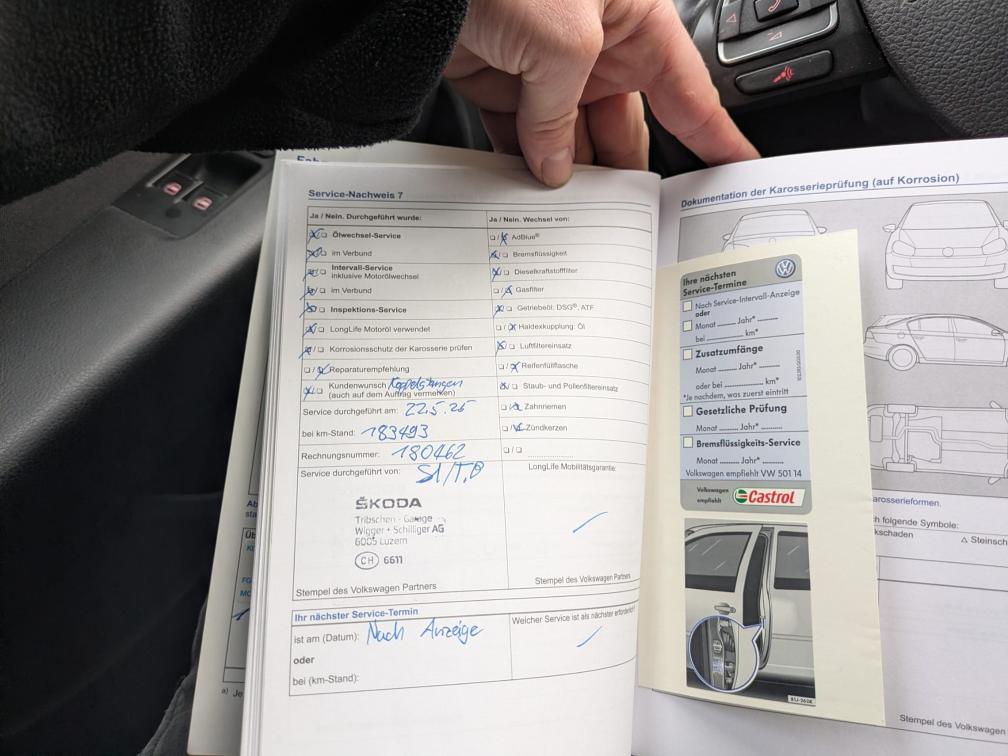 Service-Nachweis 7
Ja / Nein. Durchgeführt wurde:
Ölwechsel-Service
im Verbund
Intervall-Service
inklusive Motorölwechsel
im Verbund
Inspektions-Service
LongLife Motoröl verwendet
Korrosionsschutz der Karosserie prüfen
Reparaturempfehlung
Kundenwunsch Koppelstangen
(auch auf dem Auftrag vermerken)
Service durchgeführt am: 22.5.25
bei km-Stand: 183493
Rechnungsnummer: 180462
Service durchgeführt von:
ŠKODA
Tribschen - Garage
Wigger + Schilliger AG
6005 Luzern
CH 6611
Stempel des Volkswagen Partners
Ja / Nein. Wechsel von:
AdBlue®
Bremsflüssigkeit
Dieselkraftstofffilter
Gasfilter
Getriebeöl: DSG®, ATF
Haldexkupplung: Öl
Luftfiltereinsatz
Reifenfüllflasche
Staub- und Pollenfiltereinsatz
Zahnriemen
Zündkerzen
LongLife Mobilitätsgarantie:
Stempel des Volkswagen Partners
Ihr nächster Service-Termin
ist am (Datum): Nach Anzeige
oder
bei (km-Stand):
Welcher Service ist als nächster erforderlich?
a) Je
Dokumentation der Karosserieprüfung (auf Korrosion)
Ihre nächsten
Service-Termine
Nach Service-Intervall-Anzeige
oder
Monat ........ Jahr* ........
bei ................ km*
Zusatzumfänge
Monat ........ Jahr* ........
oder bei ................ km*
*Je nachdem, was zuerst eintritt
Gesetzliche Prüfung
Monat ........ Jahr* ........
Bremsflüssigkeits-Service
Monat ........ Jahr* ........
Volkswagen empfiehlt VW 501 14
Volkswagen
empfiehlt
Castrol
arosserieformen.
h folgende Symbole:
kschaden
△ Steinsch
Stempel des Volkswagen